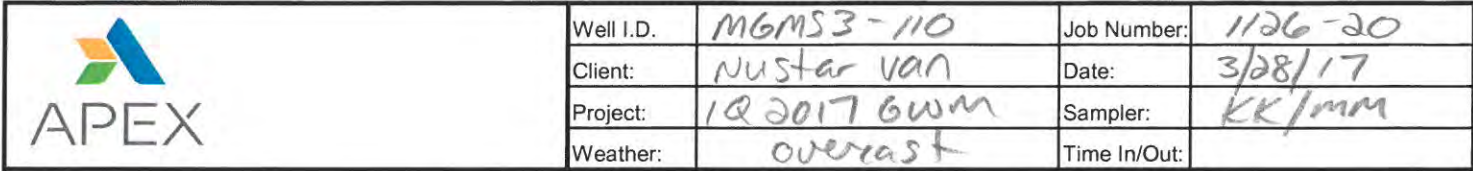 Well I.D. MGMS3-110 Job Number: 1126-20
Client: Nustar Van Date: 3/28/17
Project: 1Q 2017 GWM Sampler: KK/MM
APEX
Weather: overcast Time In/Out: